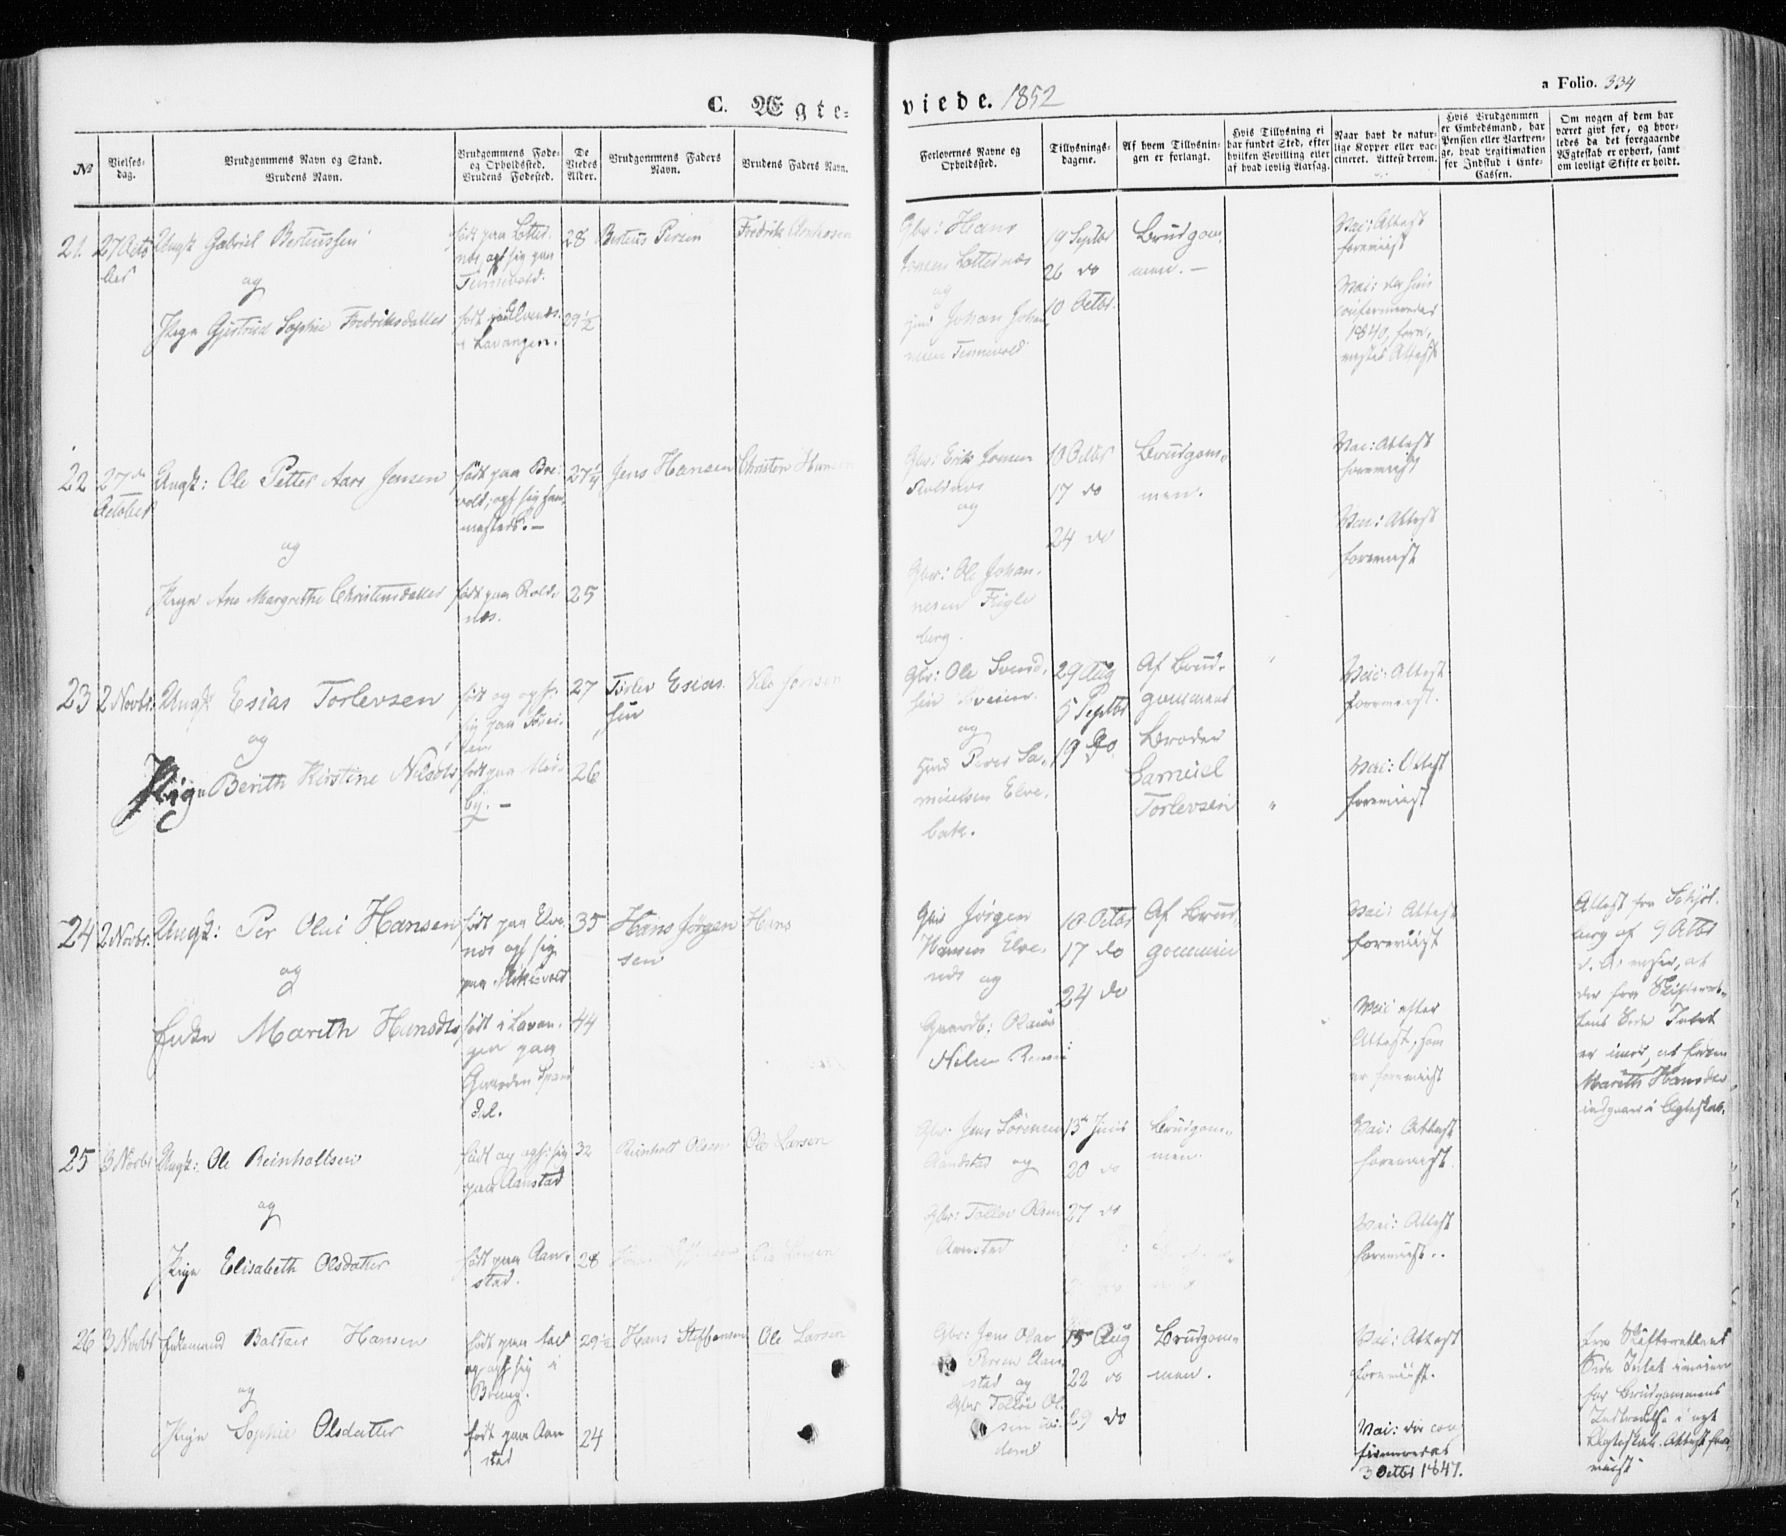 C. Ægte-
viede. 1852
a Folio. 334
No
Vielses-
dag.
Brudgommens Navn og Stand.
Brudens Navn.
Brudgommens Føde-
og Opholdssted.
Brudens Fødested.
De
Viedes
Alder.
Brudgommens Faders
Navn.
Brudens Faders Navn.
Forlovernes Navne og
Opholdssted.
Tillysnings-
dagene.
Af hvem Tillysnin-
gen er forlangt.
Hvis Tillysning ei
har fundet Sted, efter
hvilken Bevilling eller
af hvad lovlig Aarsag.
Naar havt de natur-
lige Kopper eller vac-
cineret. Attest derom.
Hvis Brudgommen
er Embedsmand, har
Pension eller Vartpen-
ge, hvad Legitimation
for Indskud i Enke-
Cassen.
Om nogen af dem har
været givt før, og hvor-
ledes da det foregaaende
Ægteskab er ophørt, samt
om lovligt Skifte er holdt.
21.
27 Octo
ber
Ungk Gabriel Berteussen
og
Pige Gjertrud Sophie Fredriksdatter
født paa Lotter
næs, oph sig paa
Tennevold.
født paa Elvenes
i Lavangen.
28
29 1/2
Berteus Persen
Fredrik
Gbr: Hans
Jonsen Lotternæs
og
Johan Johan
nesen Tennevold
19 Septbr
26 do
10 Octbr.
Brudgom
men. —
Vac: Attest
foreviist
Vac: da hun
confirmeredes
1840, fore,
vistes Attest
22
27de
October
Ungk: Ole Petter Aars Jensen
og
Pige Ane Margrethe Christensdatter
født paa Bre
vold; oph sig sam
mesteds. —
født paa Rold
næs.
27 1/4
25
Jens Hansen
Christen Hansen
Gbr: Erik Jonsen
Roldnæs
og
Gbr: Ole Johan.
nesen Fugle
berg.
10 Octbr
17 do
24 do
Brudgom-
men.
Vac: Attest
foreviist
Vac: Attest
foreviist
23
2 Novbr.
Ungk Esias Torlevsen
og
Pige Berith Kirstine Nilsdtr
født og oph:
sig paa
født paa
by. —
27
26
Torlev Esias.
sen
Nils Jonsen
Gbr: Ole Svend.
sen
og
Peder Sa-
muelsen Elve.
bak.
29 Aug
5 Septbr
19 do
Af Brud-
gommens
Broder
Samuel
Torlevsen
Vac: Attest
foreviist.
Vac: Attest
foreviist
24
2 Novbr.
Ungk: Per Olai Hansen
og
Enke Marith Hansdtr
født paa Elve
næs oph sig
paa
født i Lavan.
gen paa
Gaarden Span
dal.
35
44
Hans Jørgen
sen
Hans
Gbr Jørgen
Hansen Elve.
næs og
Gaardb: Olaus
Nilsen
10 Octbr
17 do
24 do
Af Brud
gommen
Vac: Attest
foreviist
Vac: efter
Attest, som
er foreviist
Attest fra
berg af 9 Octbr
d. A. viser, at
der fra Skifteret-
tens Side Intet
er imod, at Enken
Marith Hansdtr
indgaaer i Ægteskab.
25
3 Novbr
Ungk: Ole Reinholtsen
og
Pige Elisabeth Olsdatter
født og oph: sig
paa Aanstad
født paa Aan.
stad.
32
28
Reinholt Olsen
Ole Larsen
Gbr: Jens Sørensen
Aandstad og
Gbr: Tollev Olsen
Aanstad
13de Juni
20 do
27 do
Brudgom-
men.
Vac: Attest
foreviist.
Vac: Attest
foreviist..
26
3 Novbr
Enkemand Baltzer Hansen
og
Pige Sophie Olsdatter
født paa
og oph sig i
født paa Aan
stad
29 1/2
24
Hans Steffensen
Ole Larsen
Gbr: Jens Olai
Aan
stad og
Gbr Tollev Ol.
sen ibi.
dem
15 Aug
22 do
29 do
Brudgom-
men.
Vac: Attest
foreviist.
Vac: da con
firmeredes
3 Octbr 1847.
fra Skifterettens
Side Intet imod
for Brudgommens
Indtrædelse i nyt
Ægteskab. Attest fore
viist